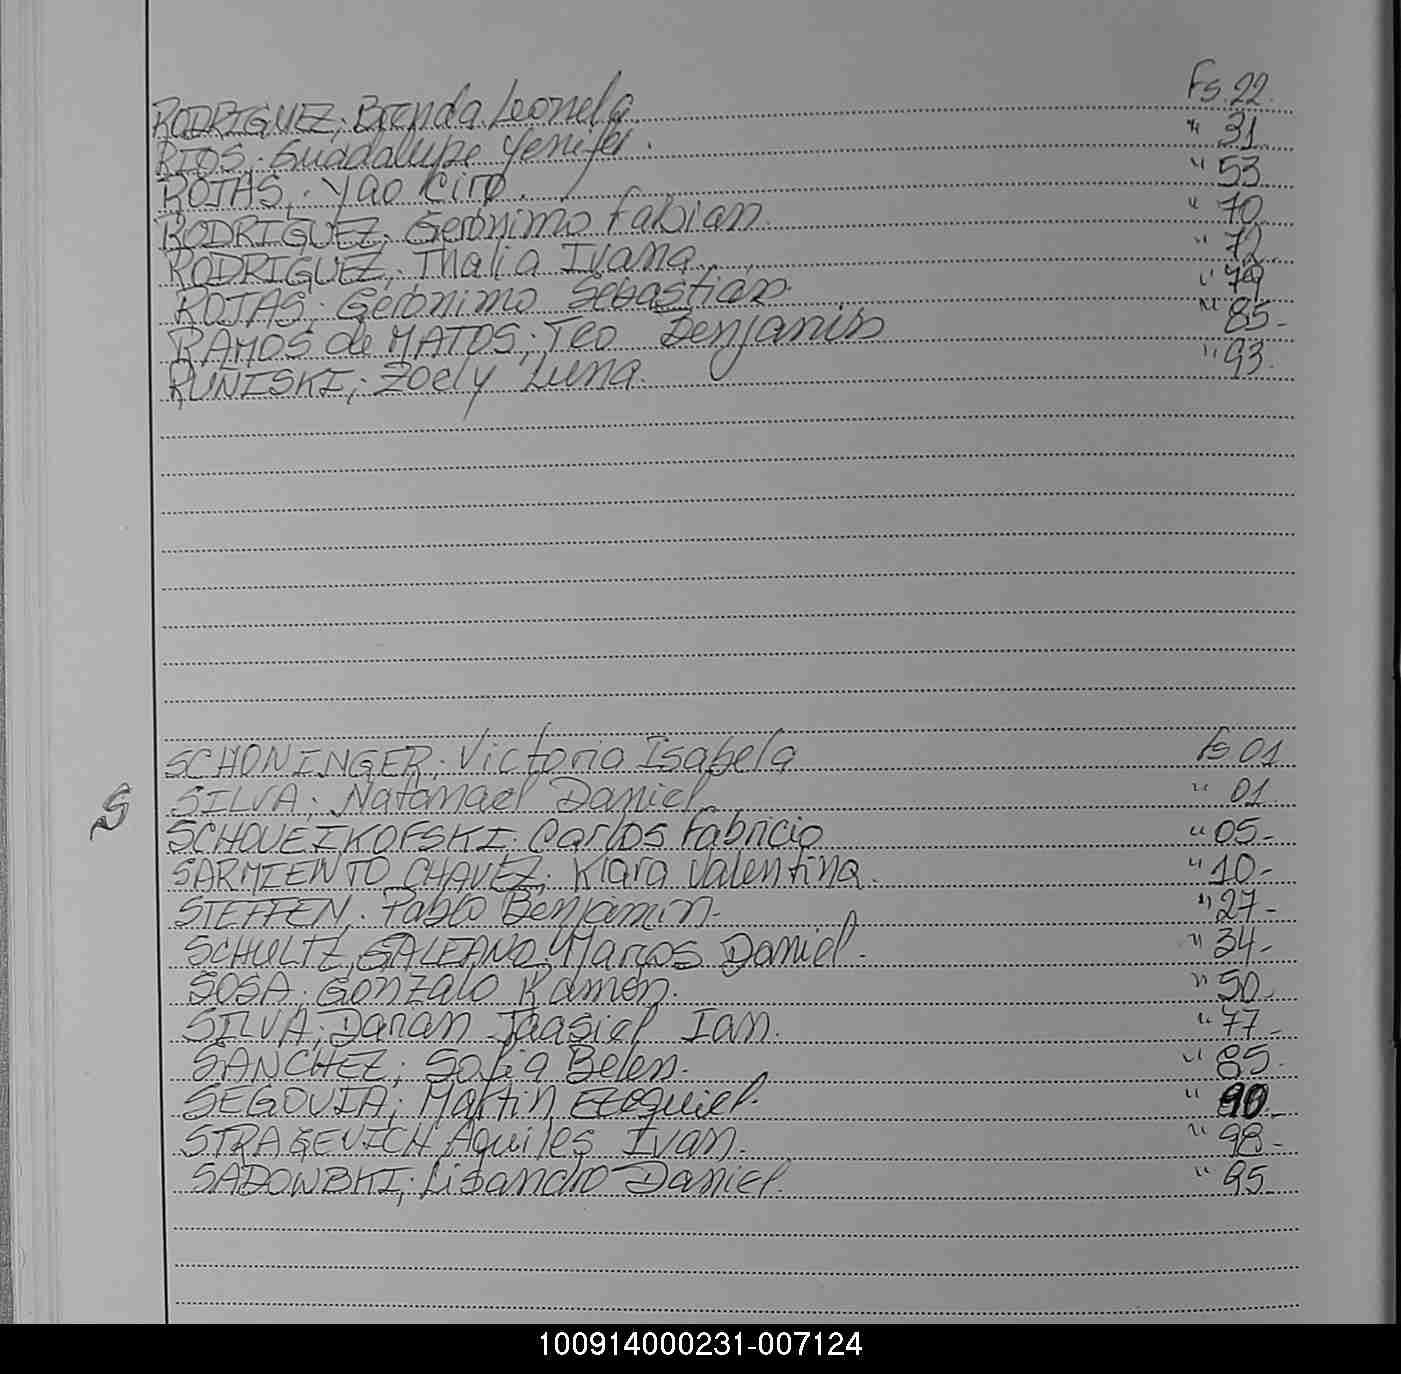 RODRIGUEZ; Brenda Leonela. Fs. 22.
RIOS; Guadalupe Yenifer. " 31.
ROJAS; Yao Ciro. " 53.
RODRIGUEZ; Gerónimo Fabian. " 70.
RODRIGUEZ; Thalia Ivana. " 72.
ROJAS; Gerónimo Sebastián. " 79
RAMOS de MATOS; Teo Benjamin " 85-
RUNISKI; Zoely Luna. " 93.
SCHONINGER; Victoria Isabela Fs. 01
S
SILVA; Natanael Daniel. " 01
SCHOVEIKOFSKI; Carlos Fabricio " 05-
SARMIENTO CHAVEZ; Kiara Valentina. " 10-
STEFFEN; Pablo Benjamin.- " 27-
SCHULTZ GALEANO; Marcos Daniel.- " 34-
SOSA; Gonzalo Ramón. " 50.
SILVA; Darian Jaasiel Ian. " 77-
SANCHEZ; Sofia Belen.- " 85-
SEGOVIA; Martin Ezequiel. " 90-
STRAGEVICH Aquiles Ivan. " 98-
SADOWSKI; Lisandro Daniel. " 95
100914000231-007124